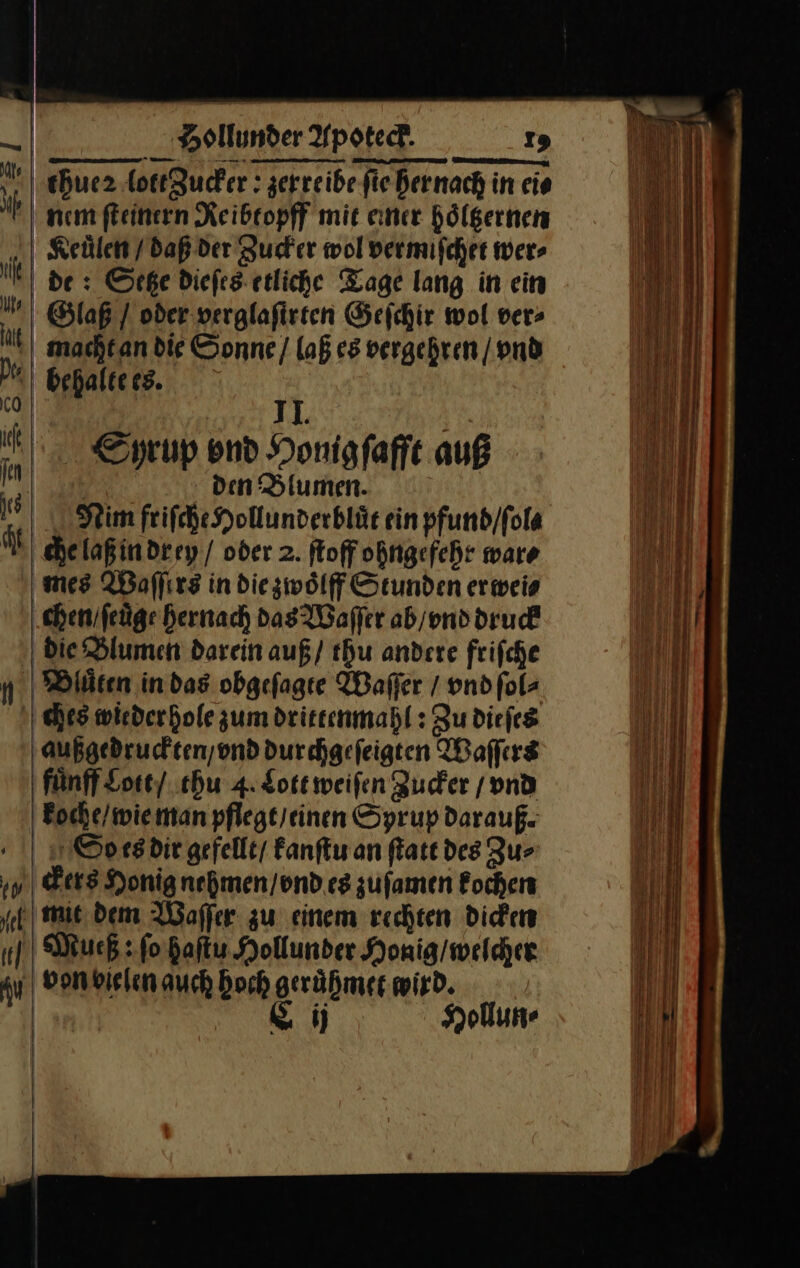 Hollunder Apoteck. 19
thue 2 lott Zucker : zerreibe ſie hernach in ei⸗
nem ſteinern Reibtopff mit einer hoͤltzernen
Keuͤlen / daß der Zucker wol vermiſchet wer⸗
de : Setze dieſes etliche Tage lang in ein
Glaß / oder verglaſirten Geſchir wol ver⸗
macht an die Sonne / laß es vergehren / vnd
behalte es.
II.
Syrup vnd Honigſafft auß
den Blumen.
Nim friſche Hollunderbluͤt ein pfund / ſol⸗
che laß in drey / oder 2. ſtoff ohngefehr war⸗
mes Waſſers in die zwoͤlff Stunden erwei⸗
chen / ſeuͤge hernach das Waſſer ab / vnd druck
die Blumen darein auß / thu andere friſche
Bluͤten in das obgeſagte Waſſer / vnd ſol⸗
ches wiederhole zum drittenmahl : Zu dieſes
außgedruckten / vnd durchgeſeigten Waſſers
fuͤnff Lott / thu 4. Lott weiſen Zucker / vnd
koche / wie man pflegt / einen Syrup darauß.
So es dir gefellt / kanſtu an ſtatt des Zu⸗
ckers Honig nehmen / vnd es zuſamen kochen
mit dem Waſſer zu einem rechten dicken
Mueß : ſo haſtu Hollunder Honig / welcher
von vielen auch hoch geruͤhmet wird.
C ij Hollun⸗